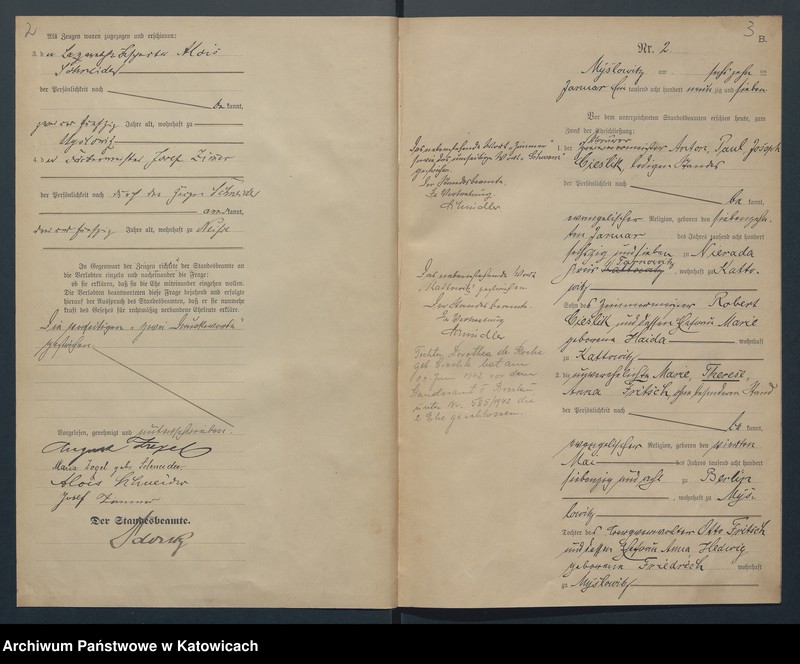 2
Als Zeugen waren zugezogen und erschienen:
3. der Alois
Schneider
der Persönlichkeit nach
be kannt,
zwei und fünfzig Jahre alt, wohnhaft zu
Myslowitz
4. der Josef Zimmer
der Persönlichkeit nach durch den Zeugen Schneider
anerkannt,
drei und fünfzig Jahre alt, wohnhaft zu Neisse
In Gegenwart der Zeugen richtete der Standesbeamte an
die Verlobten einzeln und nacheinander die Frage:
ob sie erklären, daß sie die Ehe miteinander eingehen wollen.
Die Verlobten beantworteten diese Frage bejahend und erfolgte
hierauf der Ausspruch des Standesbeamten, daß er sie nunmehr
kraft des Gesetzes für rechtmäßig verbundene Eheleute erkläre.
Die zwei Druckworte
gestrichen.
Vorgelesen, genehmigt und unterschrieben.
August
Maria geb. Schneider
Alois Schneider
Josef Zimmer
Der Standesbeamte.
3
B.
Nr. 2
Myslowitz am sechszehn ten
Januar Ein tausend acht hundert neun zig und sieben
Vor dem unterzeichneten Standesbeamten erschien heute, zum
Zweck der Eheschließung:
1. der Maurermeister Anton, Paul Joseph
Cieslik, ledigen Standes
der Persönlichkeit nach
be kannt,
evangelischer Religion, geboren den siebenzehn-
ten Januar des Jahres tausend acht hundert
sechszig und sieben zu Nierada
Kreis Kattowitz Tarnowitz, wohnhaft zu Katto-
witz
Sohn des Robert
Cieslik und dessen Ehefrau Marie
geborene Haida wohnhaft
zu Kattowitz
2. die unverehelichte Marie, Therese,
Anna Fritsch, ohne besonderen Stand
der Persönlichkeit nach
be kannt,
evangelischer Religion, geboren den vierten
Mai des Jahres tausend acht hundert
siebenzig und acht zu Berlin
, wohnhaft zu Mys-
lowitz
Tochter des Otto Fritsch
und dessen Ehefrau Anna Hedwig
geborene Friedrich wohnhaft
zu Myslowitz
Das nebenstehende Wort „Zimmer“
gestrichen.
Der Standesbeamte.
In Vertretung
Schindler
Das nebenstehende Wort
„Kattowitz“ gestrichen
Der Standesbeamte.
In Vertretung
Schindler
Tochter Dorothea
geb. Cieslik hat am
Juni 1942 vor dem
Standesamt I Breslau
unter Nr. 585/1942 die
2. Ehe geschlossen.
Archiwum Państwowe w Katowicach